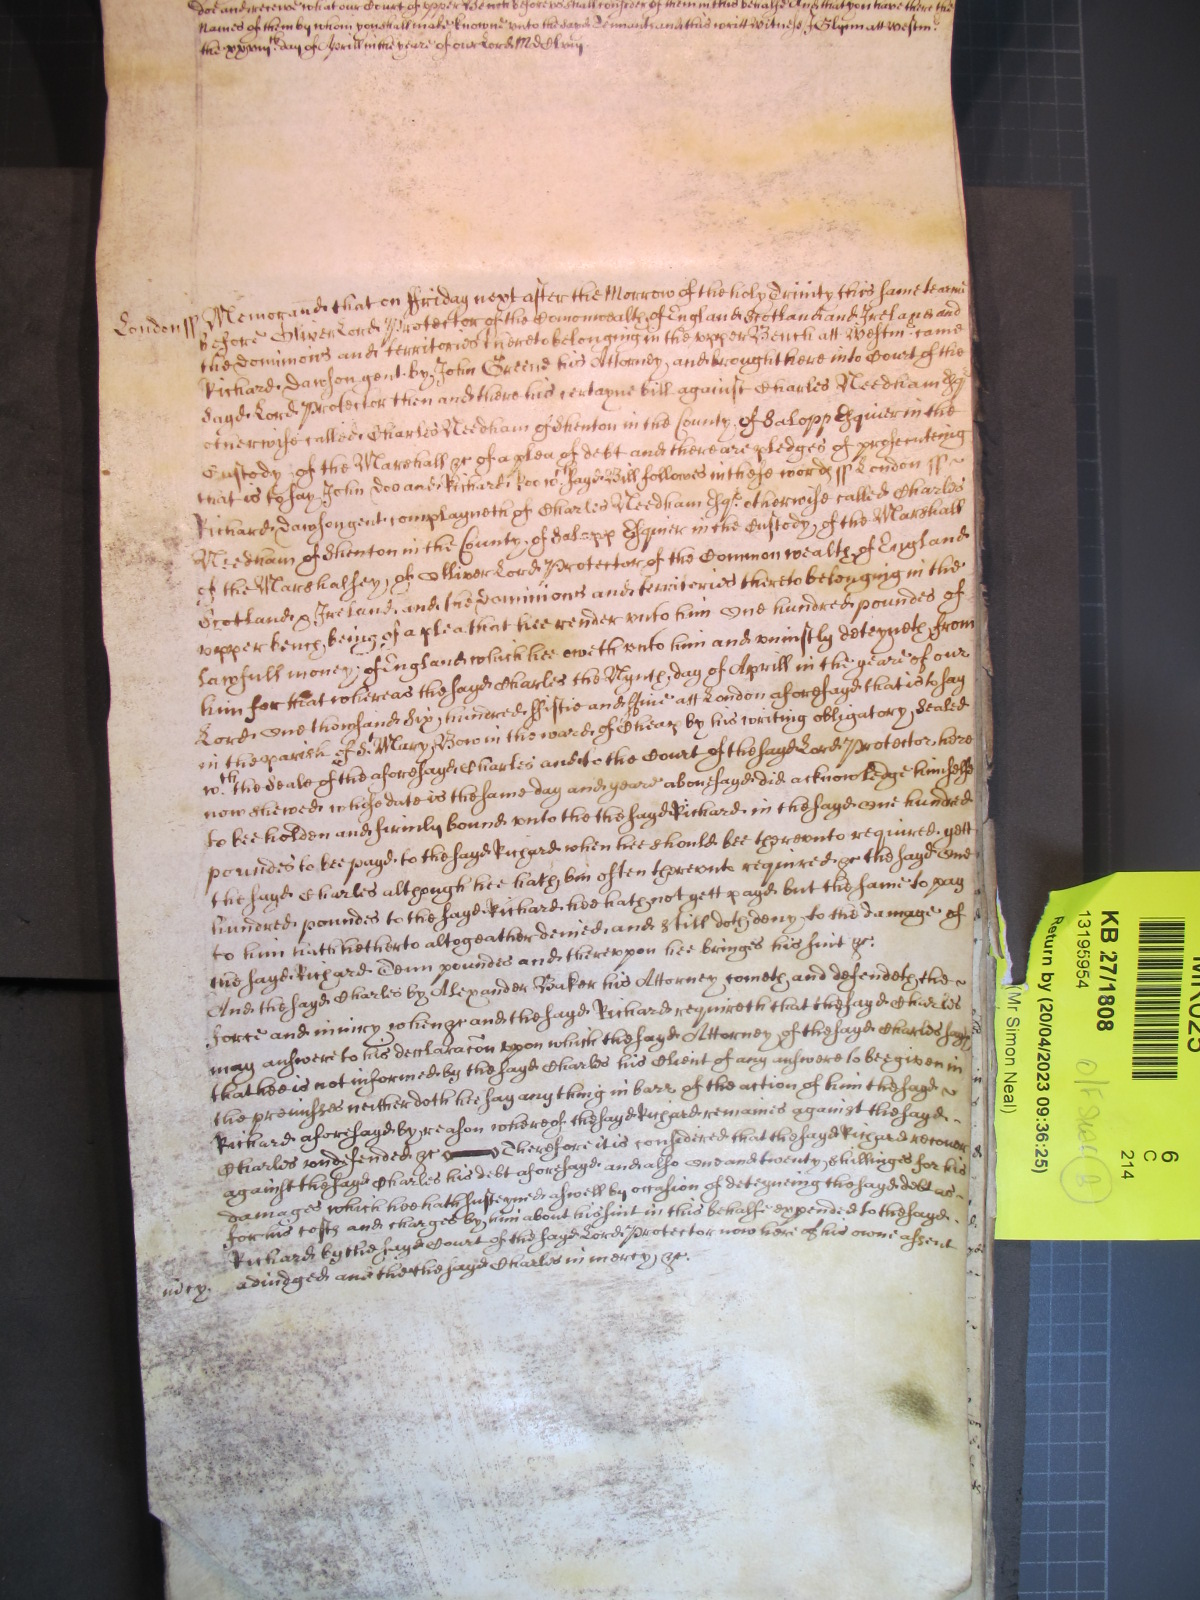 doe and receive what our Court of upper Bench before us shall consider of them in this behalfe And that you have there the
Names of them by whom you shall make knowne unto the sayd Tennants and this writt witnes J Glynn att Westm.
the xxviijth day of Aprill in the yeare of our Lord MDClviij
London ss Memorand that on ffriday next after the Morrow of the holy Trinity this same tearme
before Oliver Lord Protector of the Comonwealth of England Scotland and Ireland and
the Dominions and territories thereto belonging in the upper Bench att Westm came
Richard Dawson gent by John Greene his Attorney and brought here into Court of the
sayd Lord Protector then and there his certayne bill against Charles Needham Esqr
otherwise called Charles Needham of Shenton in the County of Salopp Esquier in the
Custody of the Marshall &c of a plea of debt and there are pledges of prosecuteing
that is to say John Doo and Richard Roo wch sayd Bill followes in these words ss London ss
Richard Dawson gent complayneth of Charles Needham Esqr otherwise called Charles
Needham of Shenton in the County of Salopp Esquier in the Custody of the Marshall
of the Marshalsey of Olliver Lord Protector of the Common wealth of England
Scotland & Ireland and the Dominions and territories thereto belonging in the
upper bench being of a plea that hee render unto him One hundred poundes of
lawfull money of England which hee oweth unto him and uniustly deteyneth from
him for that whereas the sayd Charles the Nynth day of Aprill in the yeare of our
Lord One thousand six hundred ffiftie and ffive att London aforesayd that is to say
in the parish of St Mary Bow in the ward of Cheap by his writing obligatory sealed
wth the seale of the aforesayd Charles and to the Court of the sayd Lord Protector here
now shewed whose date is the same day and yeare abovesayd did acknowledge himselfe
to bee holden and firmly bound unto the the sayd Richard in the sayd One hundred
poundes to bee payd to the sayd Richard when hee should bee thereunto required yett
the sayd Charles although hee hath bin often thereunto required &c the sayd One
hundred poundes to the sayd Richard hee hath not yett payd but the same to pay
to him hath hetherto altogeather denied and still doth deny to the damage of
the sayd Richard Tenn poundes and thereupon hee bringes his suit &c.
And the sayd Charles by Alexander Baker his Attorney cometh and defendeth the
force and iniury when &c and the sayd Richard requireth that the sayd Charles
may answere to his declaracon upon which the sayd Attorney of the sayd Charles sayth
that hee is not informed by the sayd Charles his Client of any answere to bee given in
the premisses neither doth hee say any thing in barr of the action of him the sayd
Richard aforesayd by reason whereof the sayd Richard remaines against the sayd
Charles undefended &c Therefore it is considered that the sayd Richard recover
against the sayd Charles his debt aforesayd and also One and twenty shillinges for his
damages which hee hath susteyned aswell by occasion of deteyneing the sayd debt as
for his costs and charges by him about his suit in this behalfe expended to the sayd
Richard by the sayd Court of the sayd Lord Protector now here of his owne assent
mercy. adiudged and the the sayd Charles in mercy &c.
6
C
214
KB 27/1808
13195954
Return by (20/04/2023 09:36:25)
(Mr Simon Neal)